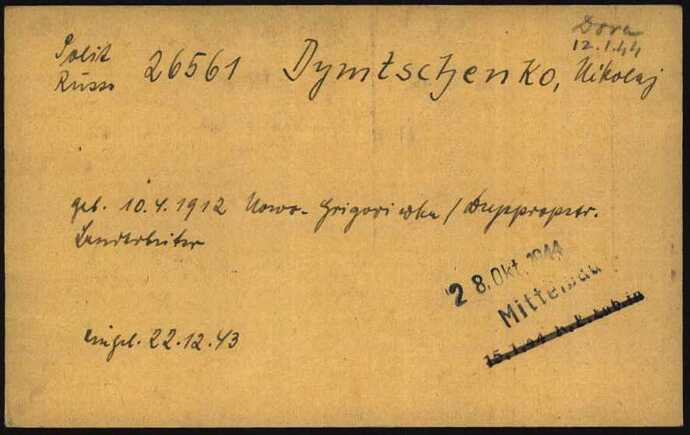 Dora
12.1.44
Polit
Russe
26561 Dymtschenko, Nikolaj
geb. 10.4.1912 Nowo-Grigoriewka / Dnjepropetr.
Landarbeiter
28. Okt. 1944
Mittelbau
15.1.44 K.L. Lublin
eingel. 22.12.43